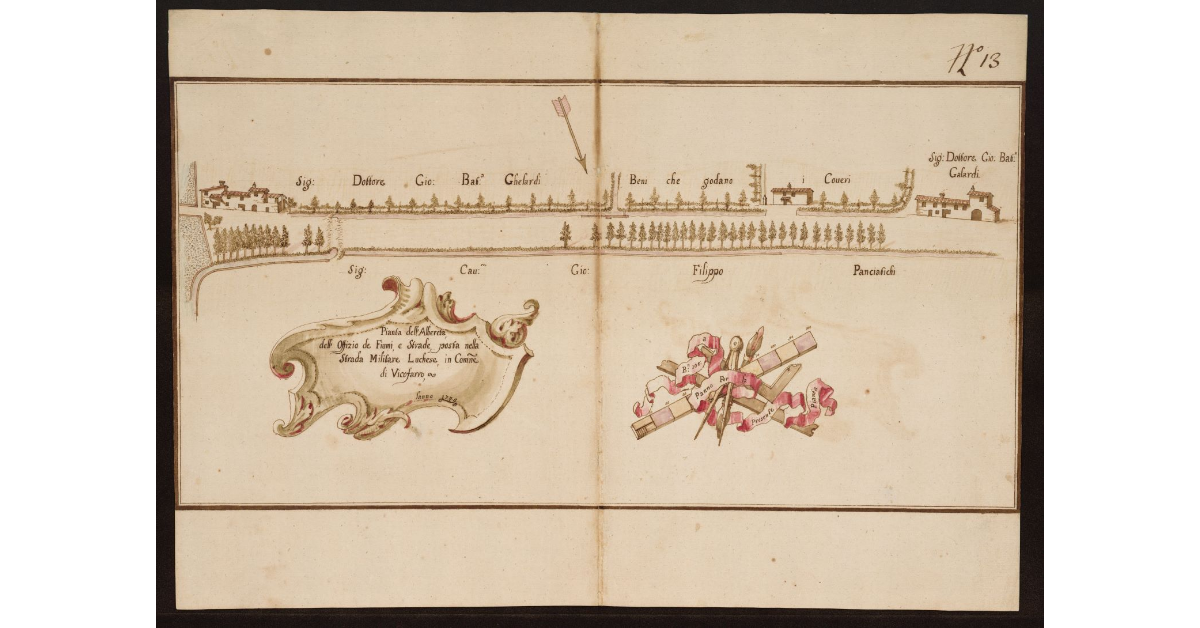 N.º 13
Sig: Dottore Gio: Bat.ª Ghelardi
Beni che godano i Coveri
Sig: Dottore Gio: Bat.ª
Galardi
Sig: Cav:re Gio: Filippo Panciatichi
Pianta dell'Albereta
dell'Offizio de Fiumi, e Strade, posta nella
Strada Militare Luchese in Comne
di Vicofarro
lanno
Panno Per
Presente
Pianta